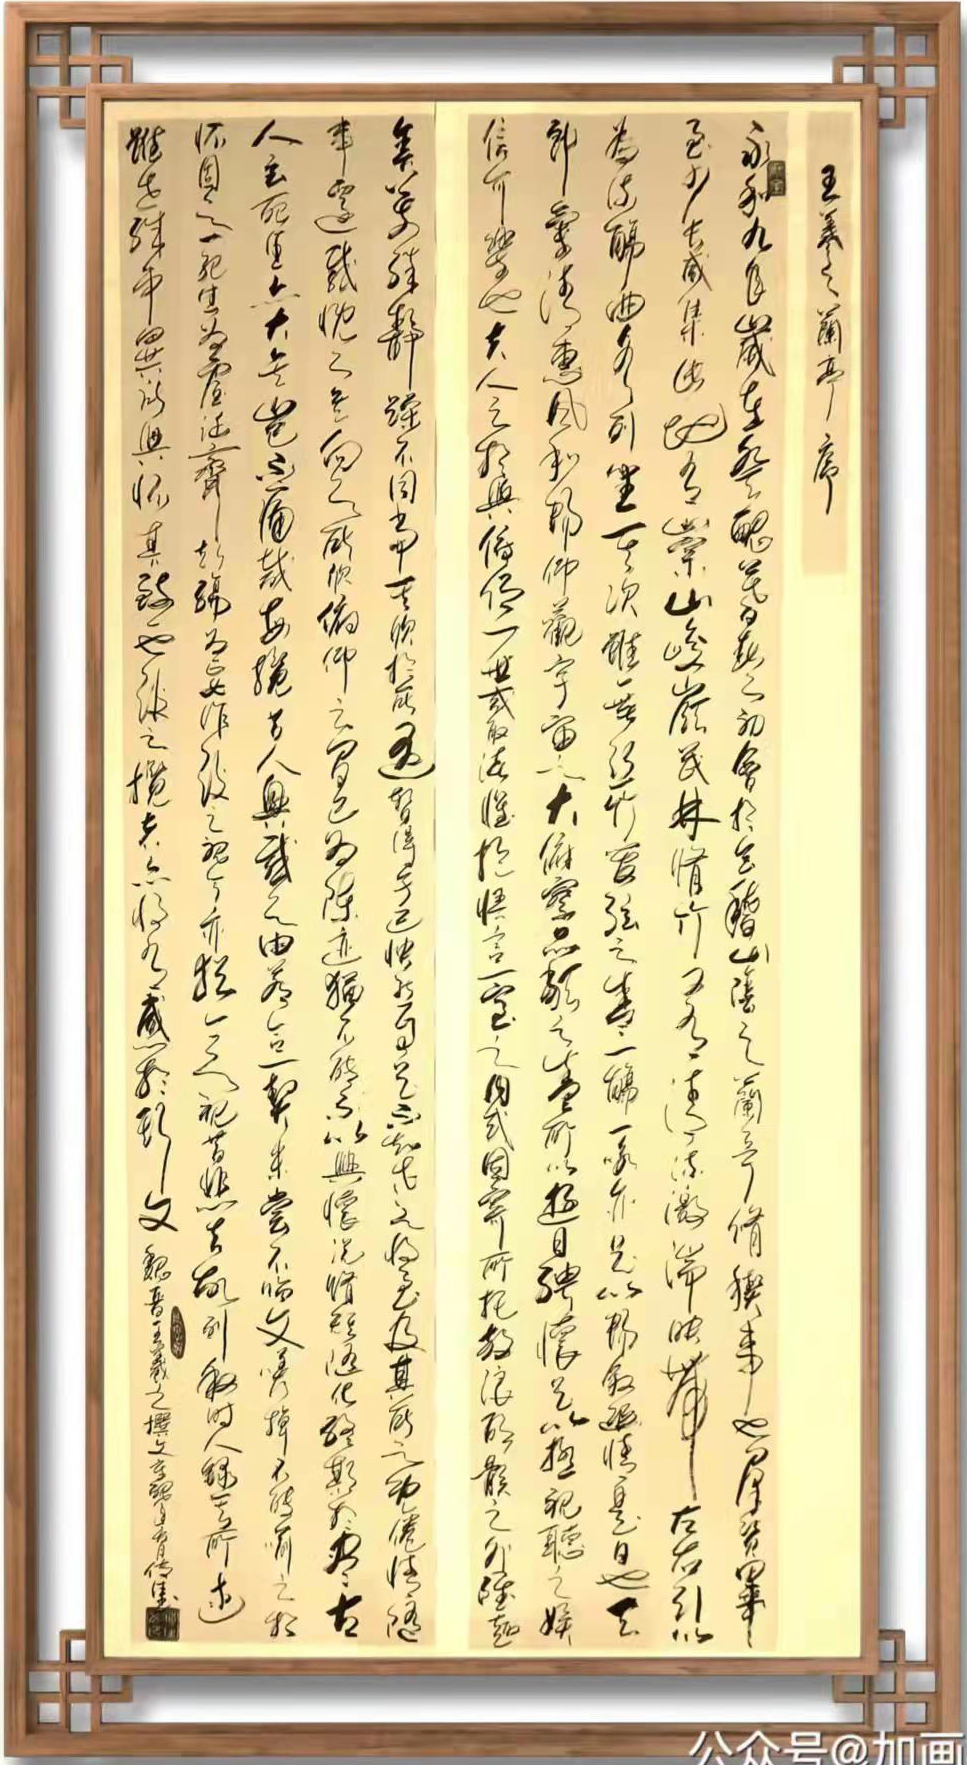 王羲之蘭亭序
永和九年歲在癸丑暮春之初會於會稽山陰之蘭亭脩稧事也羣賢畢
至少長咸集此地有崇山峻嶺茂林脩竹又有清流激湍映帶左右引以
為流觴曲水列坐其次雖無絲竹管弦之盛一觴一詠亦足以暢敘幽情是日也天
朗氣清惠風和暢仰觀宇宙之大俯察品類之盛所以遊目騁懷足以極視聽之娛
信可樂也夫人之相與俯仰一世或取諸懷抱悟言一室之內或因寄所托放浪形骸之外雖趣
舍萬殊靜躁不同當其欣於所遇暫得於己快然自足不知老之將至及其所之既倦情隨
事遷感慨係之矣向之所欣俯仰之間已為陳迹猶不能不以興懷況脩短隨化終期於盡古
人云死生亦大矣豈不痛哉每攬昔人興感之由若合一契未嘗不臨文嗟悼不能喻之於
懷固知一死生為虛誕齊彭殤為妄作後之視今亦猶今之視昔悲夫故列敘時人錄其所述
雖世殊事異所以興懷其致一也後之攬者亦將有感於斯文 魏晉王羲之撰文
公众号@加画